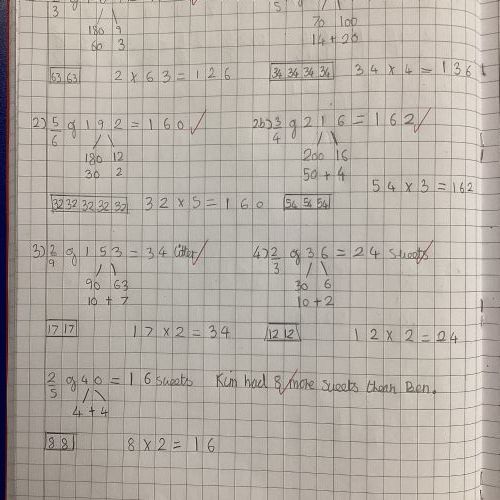 3
180 9
60 3
5
70 100
14 + 20
63 63 2 x 63 = 126
34 34 34 34 34 x 4 = 136
2) 5/6 of 192 = 160
180 12
30 2
2b) 3/4 of 216 = 162
200 16
50 + 4
32 32 32 32 32 32 x 5 = 160
54 54 54 54 x 3 = 162
3) 2/9 of 153 = 34
90 63
10 + 7
4) 2/3 of 36 = 24 sweets
30 6
10 + 2
17 17 17 x 2 = 34
12 12 12 x 2 = 24
2/5 of 40 = 16 sweets Kim had 8 more sweets than Ben.
4 + 4
8 8 8 x 2 = 16